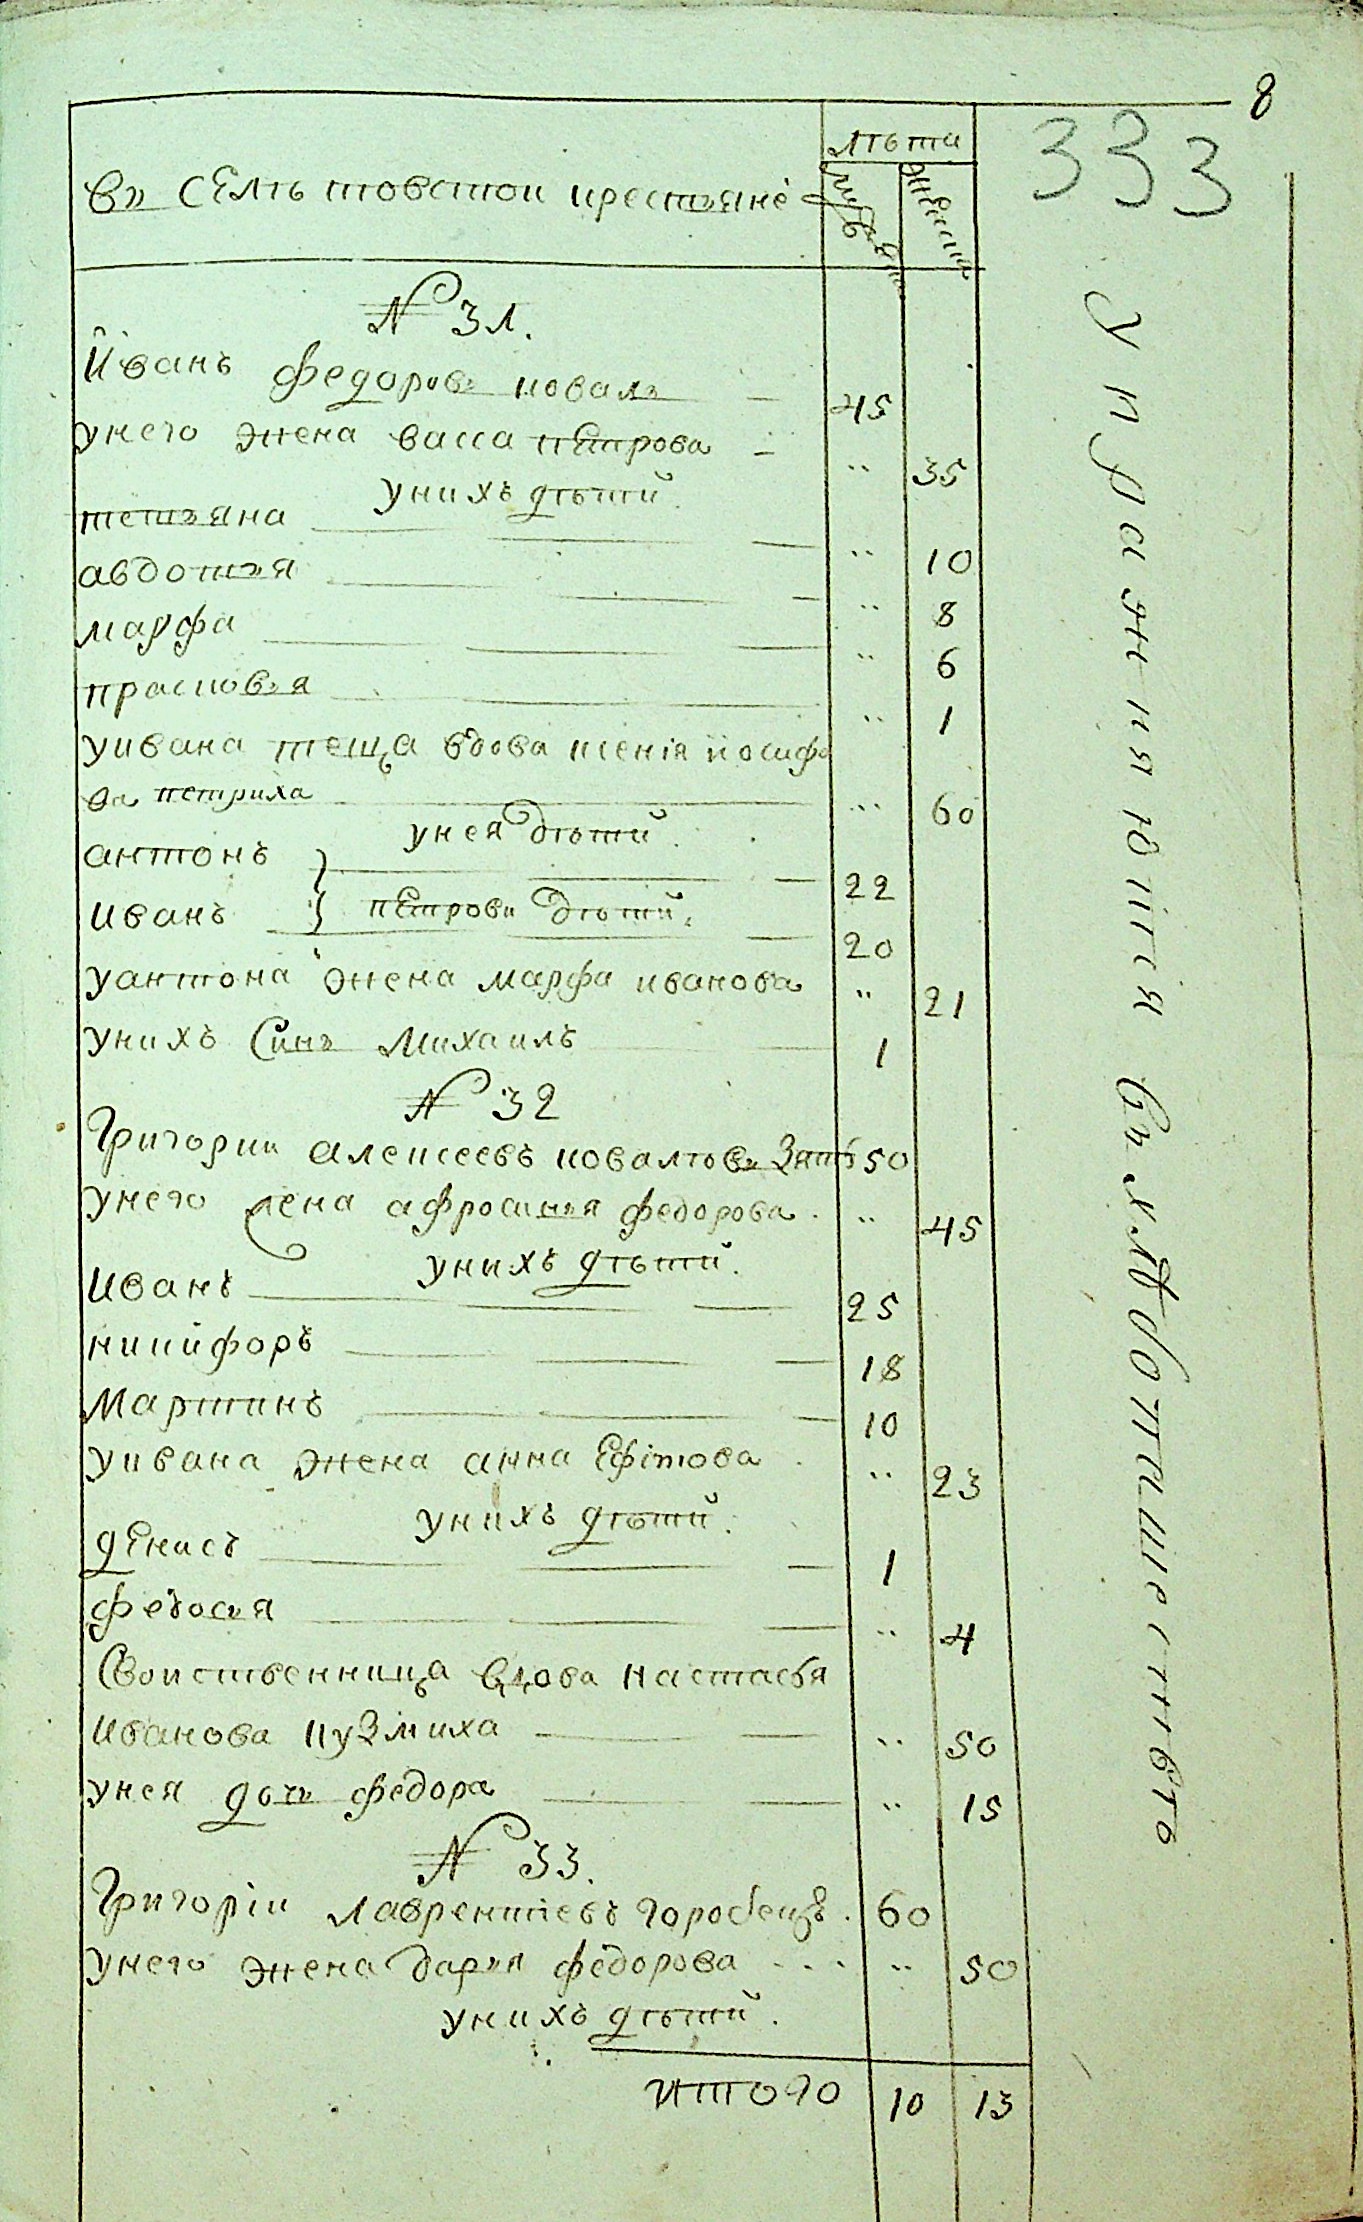 8
333
лѣта
въ селѣ товстои крестьяне
мужска
женска
№ 31.
Иванъ федоровъ коваль 45
унего жена васса петрова 35
унихъ дѣтей
тетьяна 10
авдотья 8
марфа 6
прасковья 1
уивана теща вдова ксенія иосифо
ва петриха 60
унея дѣтей.
антонъ 22
иванъ } петрови дѣтей. 20
уантона жена марфа иванова 21
унихъ Синъ Михаилъ 1
№ 32
Григории алексеевъ ковалювъ Зять 50
унего жена афросинья федорова 45
унихъ дѣтей.
иванъ 25
никифоръ 18
Мартинъ 10
уивана жена анна Ефімова 23
унихъ дѣтей.
денисъ 1
федосья 4
Свойственница вдова настасья
иванова кузмиха 50
унея дочь федора 15
№ 33.
Григоріи лаврентіевъ горобецъ 60
унего жена дарья федорова 50
унихъ дѣтей.
итого 10 13